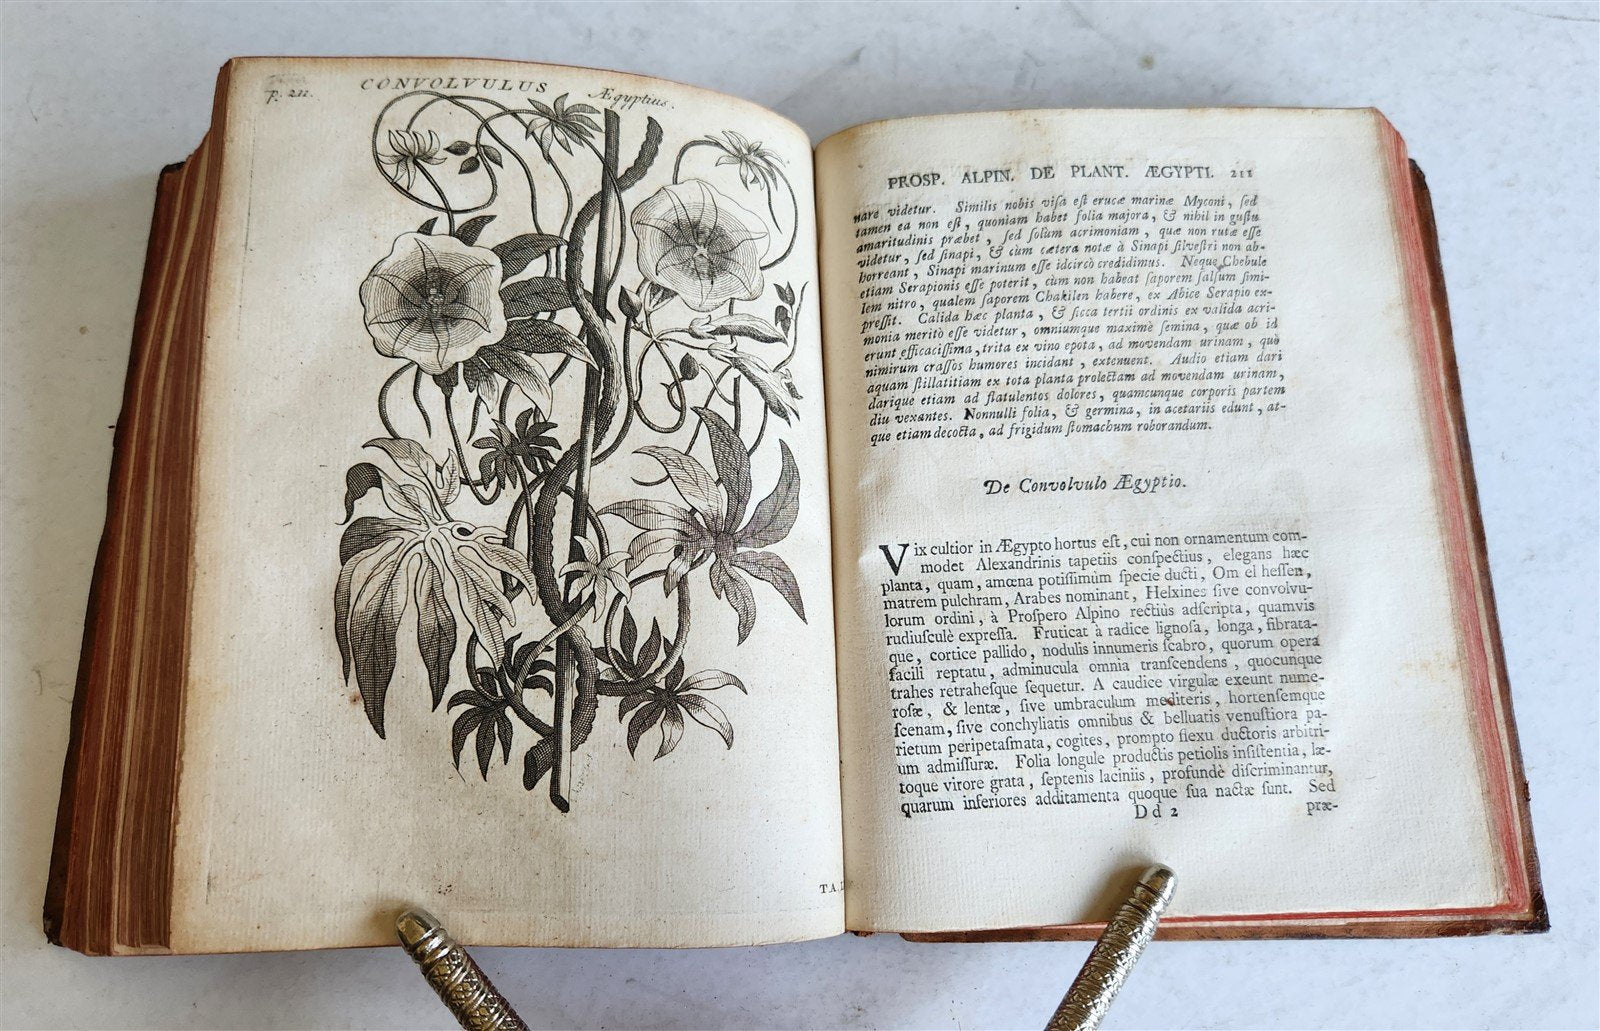 P. 211.
CONVOLVULUS
Ægyptius.
TA.
PROSP. ALPIN. DE PLANT. ÆGYPTI. 211
nare videtur. Similis nobis viſa eſt erucæ marinæ Myconi, ſed
tamen ea non eſt, quoniam habet folia majora, & nihil in guſtu
amaritudinis præbet, ſed ſolùm acrimoniam, quæ non rutæ eſſe
videtur, ſed ſinapi, & cùm cætera notæ à Sinapi ſilveſtri non ab-
horreant, Sinapi marinum eſſe idcircò credidimus. Neque Chebule
etiam Serapionis eſſe poterit, cùm non habeat ſaporem ſalſum ſimi-
lem nitro, qualem ſaporem Chakilen habere, ex Abice Serapio ex-
preſſit. Calida hæc planta, & ſicca tertii ordinis ex valida acri-
monia meritò eſſe videtur, omniumque maximè ſemina, quæ ob id
erunt efficaciſſima, trita ex vino epota, ad movendam urinam, quò
nimirum craſſos humores incidant, extenuent. Audio etiam dari
aquam ſtillatitiam ex tota planta prolectam ad movendam urinam,
darique etiam ad flatulentos dolores, quamcunque corporis partem
diu vexantes. Nonnulli folia, & germina, in acetariis edunt, at-
que etiam decocta, ad frigidum ſtomachum roborandum.
De Convolvulo Ægyptio.
Vix cultior in Ægypto hortus eſt, cui non ornamentum com-
modet Alexandrinis tapetiis conſpectius, elegans hæc
planta, quam, amœna potiſſimùm ſpecie ducti, Om el heſſen,
matrem pulchram, Arabes nominant, Helxines ſive convolvu-
lorum ordini, à Proſpero Alpino rectiùs adſcripta, quamvis
rudiuſculè expreſſa. Fruticat à radice lignoſa, longa, fibrata-
que, cortice pallido, nodulis innumeris ſcabro, quorum opera
facili reptatu, adminucula omnia tranſcendens, quocunque
trahes retraheſque ſequetur. A caudice virgulæ exeunt nume-
roſæ, & lentæ, ſive umbraculum mediteris, hortenſemque
ſcenam, ſive conchyliatis omnibus & belluatis venuſtiora pa-
rietum peripetaſmata, cogites, prompto flexu ductoris arbitri-
um admiſſuræ. Folia longule productis petiolis inſiſtentia, læ-
toque virore grata, ſeptenis laciniis, profundè diſcriminantur,
quarum inferiores additamenta quoque ſua nactæ ſunt. Sed
Dd 2
præ-